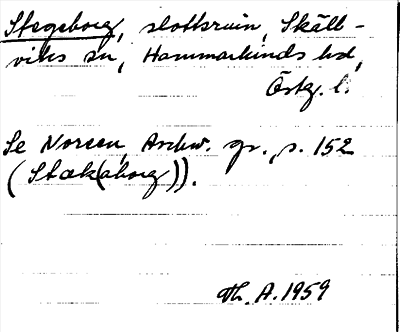 Stegeborg, slottsruin, Skäll-
viks sn, Hammarkinds hd,
Östg. l.
Se Noreen, Aschw. gr., s. 152
(Stæk(aborg)).
Th. A. 1959